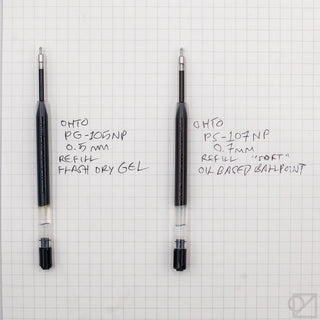 OHTO
PG-105NP
0.5mm
REFILL
FLASH DRY GEL
OHTO
PS-107NP
0.7mm
REFILL "SOFT"
OIL BASED BALLPOINT